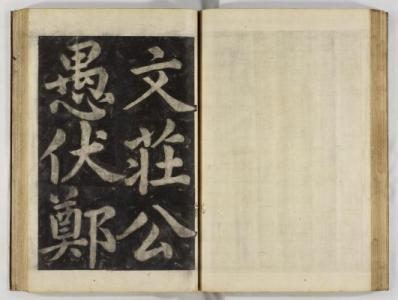 文莊公
愚伏鄭